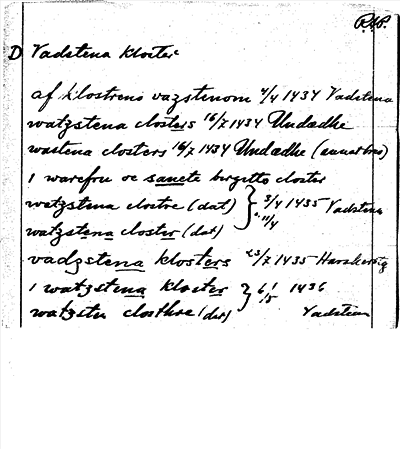 R.A.P.
D Vadstena kloster
af klostreno vazstenom 4/4 1434 Vadstena
watzstena closters 16/7 1434 Undædhe
wastena closters 16/7 1434 Undædhe (annat brev)
i warefru oc sancte birgitto closter
watzstena clostre (dat) } 3/4 1435 Vadstena
watzstena closter (dat) 11/4
vadzstena klosters 23/7 1435
i watzstena kloster } 6/5 1436
watzstn closthre (dat) Vadstena